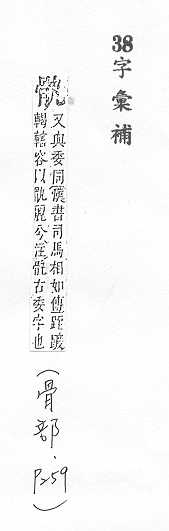 38字彙補
骫
又與委同漢書司馬相如傳跮踱
輵轄容以骫麗兮注骫古委字也
(骨部, P259)